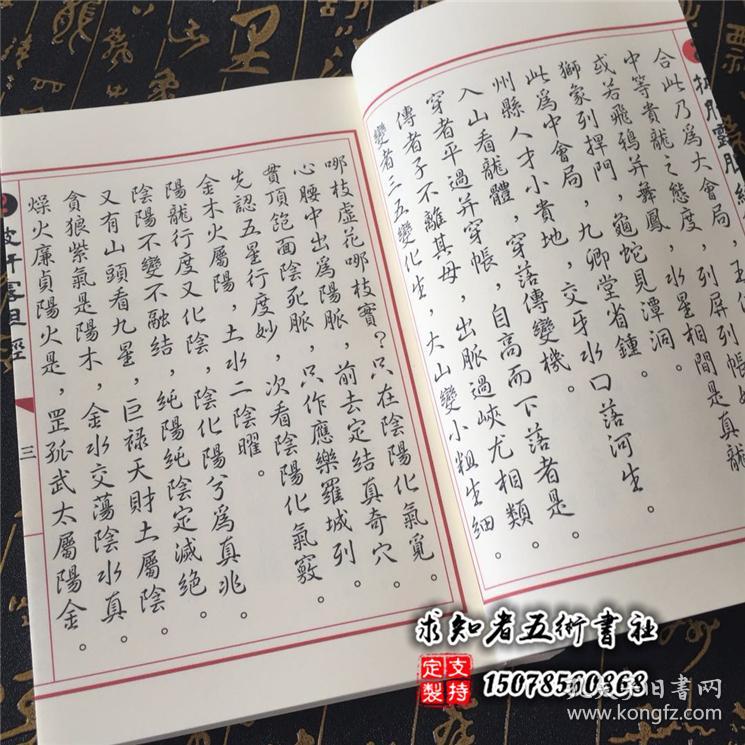 合此乃爲大會局，列屏列帳
中等貴龍之態度，水星相間是真龍
或若飛鴉并舞鳳，龜蛇見潭洞。
獅象列捍門，九卿堂省鍾。
此爲中會局，交牙水口落河生。
州縣人才小貴地，穿落傳變機。
入山看龍體，自高而下落者是。
穿者平過并穿帳，出脈過峽尤相類。
傳者子不離其母，大山變小粗生細。
變者二五變化生，
哪枝虛花哪枝實？只在陰陽化氣覓。
心腰中出爲陽脈，前去定結真奇穴。
貫頂飽面陰死脈，只作應樂羅城列。
先認五星行度妙，次看陰陽化氣竅。
金木火屬陽，土水二陰曜。
陽龍行度又化陰，陰化陽兮爲真兆。
陰陽不變不融結，純陽純陰定滅絕。
又有山頭看九星，巨祿天財土屬陰。
貪狼紫氣是陽木，金水交蕩陰水真。
燥火廉貞陽火是，罡孤武太屬陽金。
三
求知者五術書社
支持定製
15078560868
孔夫子旧書网
www.kongfz.com